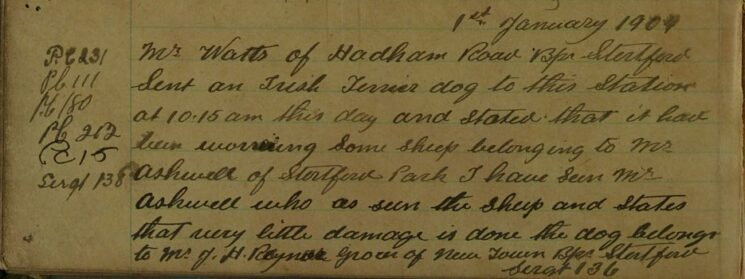 1st January 1909
Mr Watts of Hadham Road Bps Stortford
Sent an Irish Terrier dog to this Station
at 10.15 am this day and Stated that it had
been worrying Some Sheep belonging to Mr
Ashwell of Stortford Park I have Seen Mr
Ashwell who as seen the Sheep and States
that very little damage is done the dog belongs
to Mr J. H. Grocer of New Town Bps Stortford
Sergt 136
PC 231
Pc 111
Pc 180
Pc 262
PC 15
Sergt 138